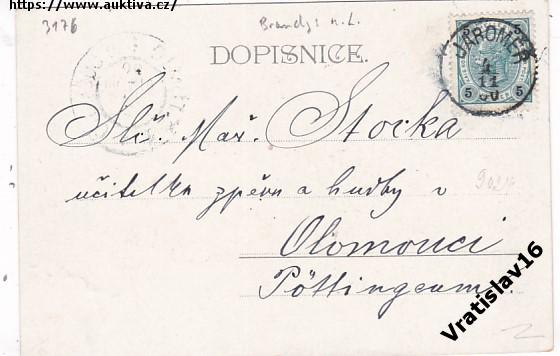 https://www.auktiva.cz/
3176
Brandýs n. L.
DOPISNICE.
JAROMĚŘ
4
11
00
5 5
Slč. Mař. Stocka
učitelka zpěvu a hudby v
Olomouci
Pöttingeum.
Vratislav16